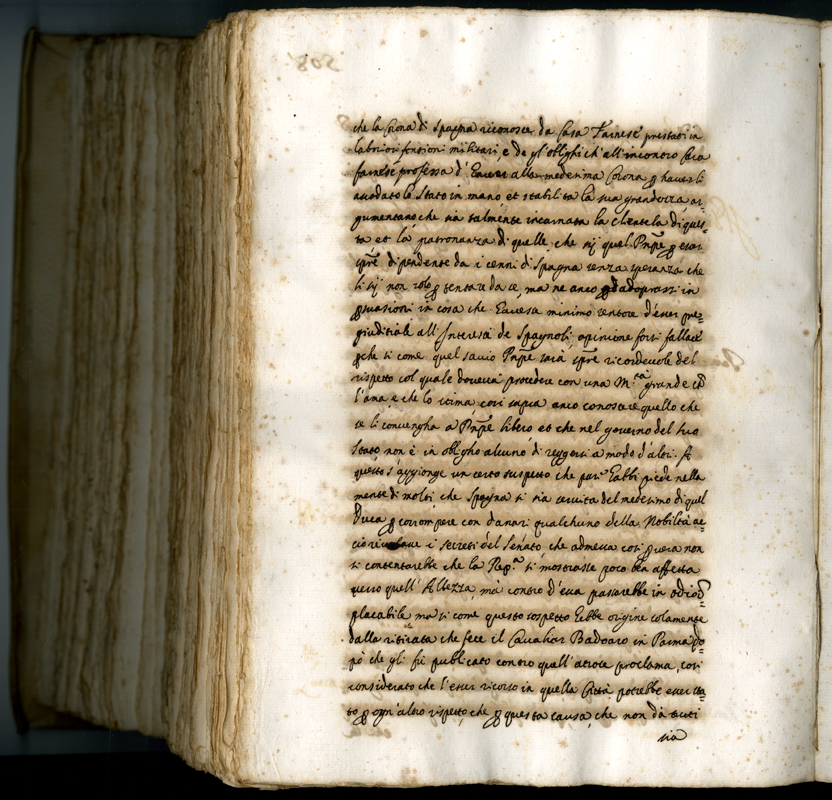 che la Corona di Spagna riconosce da Casa Farnese prestati in
laboriosi fontioni militari, e de gl'oblighi ch'all'incontro Casa
farnese professa d'hauer alla medesima Corona ꝑ hauerli
ausdato lo Stato in mano, et stabilita la sua grandezza ar=
gumentano che sia talmente incarnata la clientela di ques=
ta et la patronanza di quelle, che sij quel Pnpe ꝑ esser
spre dipendente da i cenni di Spagna senza speranza che
si sij non solo ꝑ tentare da se, ma ne anco ꝑ adoprarsi in
ꝑsuasioni in cosa che hauesse minimo sentore d'esser pre=
giuditiale all'Interessi de Spagnoli, opinione forsi fallace
ꝑche si come quel sauio Pnpe sarà spre ricordeuole del
rispetto col quale doueua procedere con una M.tà grande ch
l'ama, e che lo stima, così saprà anco conoscere quello che
se li conuengha a Pnpe libero et che nel gouerno del suo
Stato non è in obligho alcuno di reggersi a modo d'altri. A
questo s'aggionge un certo suspetto che pari habbi piede nella
mente di molti, che Spagna si sia seruita del medesimo di quel
Duca ꝑ corrompere con danari qualchuno della Nobiltà ac=
ciò riuelasse i secreti del Senato, che admessa così ꝑ uera non
si contentarebbe che la Rep.ca si mostrasse poco ben affetta
uerso quell'Altezza, mà contro d'essa passarebbe in odio
placabile, ma si come questo sospetto hebbe origine solamente
dalla ritirata che fece il Caualier Badoaro in Parma do=
pò che gli fù publicato contro quell'atroce proclama, così
considerato che l'esser ricorso in quella Città potrebbe esser sta=
to ꝑ ogn'altro rispetto, che ꝑ questa causa, che non dà tutti
sia